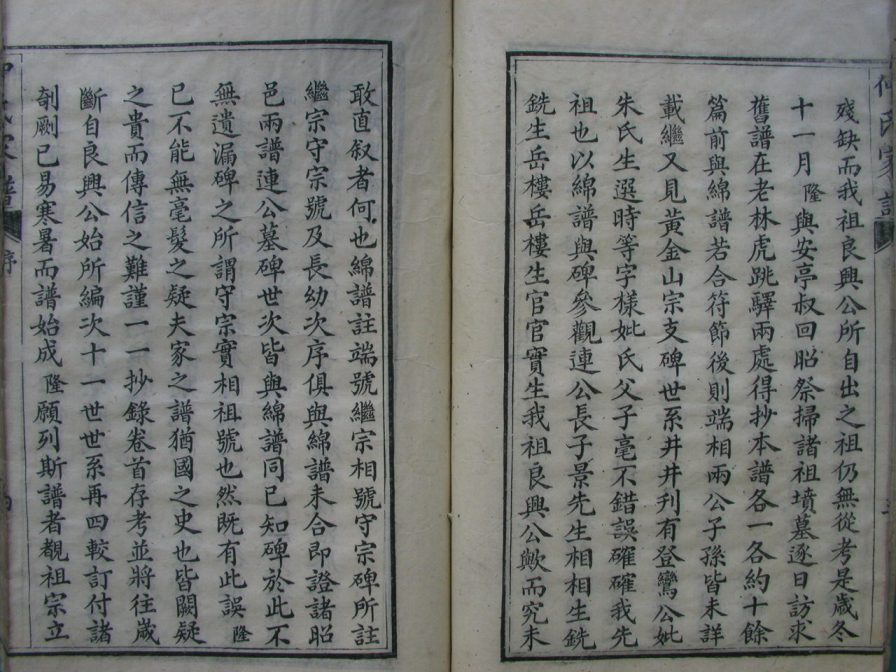 殘缺而我祖良興公所自出之祖仍無從考是歲冬
十一月隆與安亭叔回昭祭掃諸祖墳墓逐日訪求
舊譜在老林虎跳驛兩處得抄本譜各一各約十餘
篇前與綿譜若合符節後則端相兩公子孫皆未詳
載繼又見黃金山宗支碑世系井井刊有登鸞公妣
朱氏生選時等字樣妣氏父子毫不錯誤確確我先
祖也以綿譜與碑參觀連公長子景先生相相生銑
銑生岳樓岳樓生官官實生我祖良興公歟而究未
敢直叙者何也綿譜註端號繼宗相號守宗碑所註
繼宗守宗號及長幼次序俱與綿譜未合即證諸昭
邑兩譜連公墓碑世次皆與綿譜同已知碑於此不
無遺漏碑之所謂守宗實相祖號也然既有此誤隆
已不能無毫髮之疑夫家之譜猶國之史也皆闕疑
之貴而傳信之難謹一一抄錄卷首存考並將往歲
斷自良興公始所編次十一世世系再四較訂付諸
剞劂已易寒暑而譜始成隆願列斯譜者覩祖宗立
何氏家譜
序